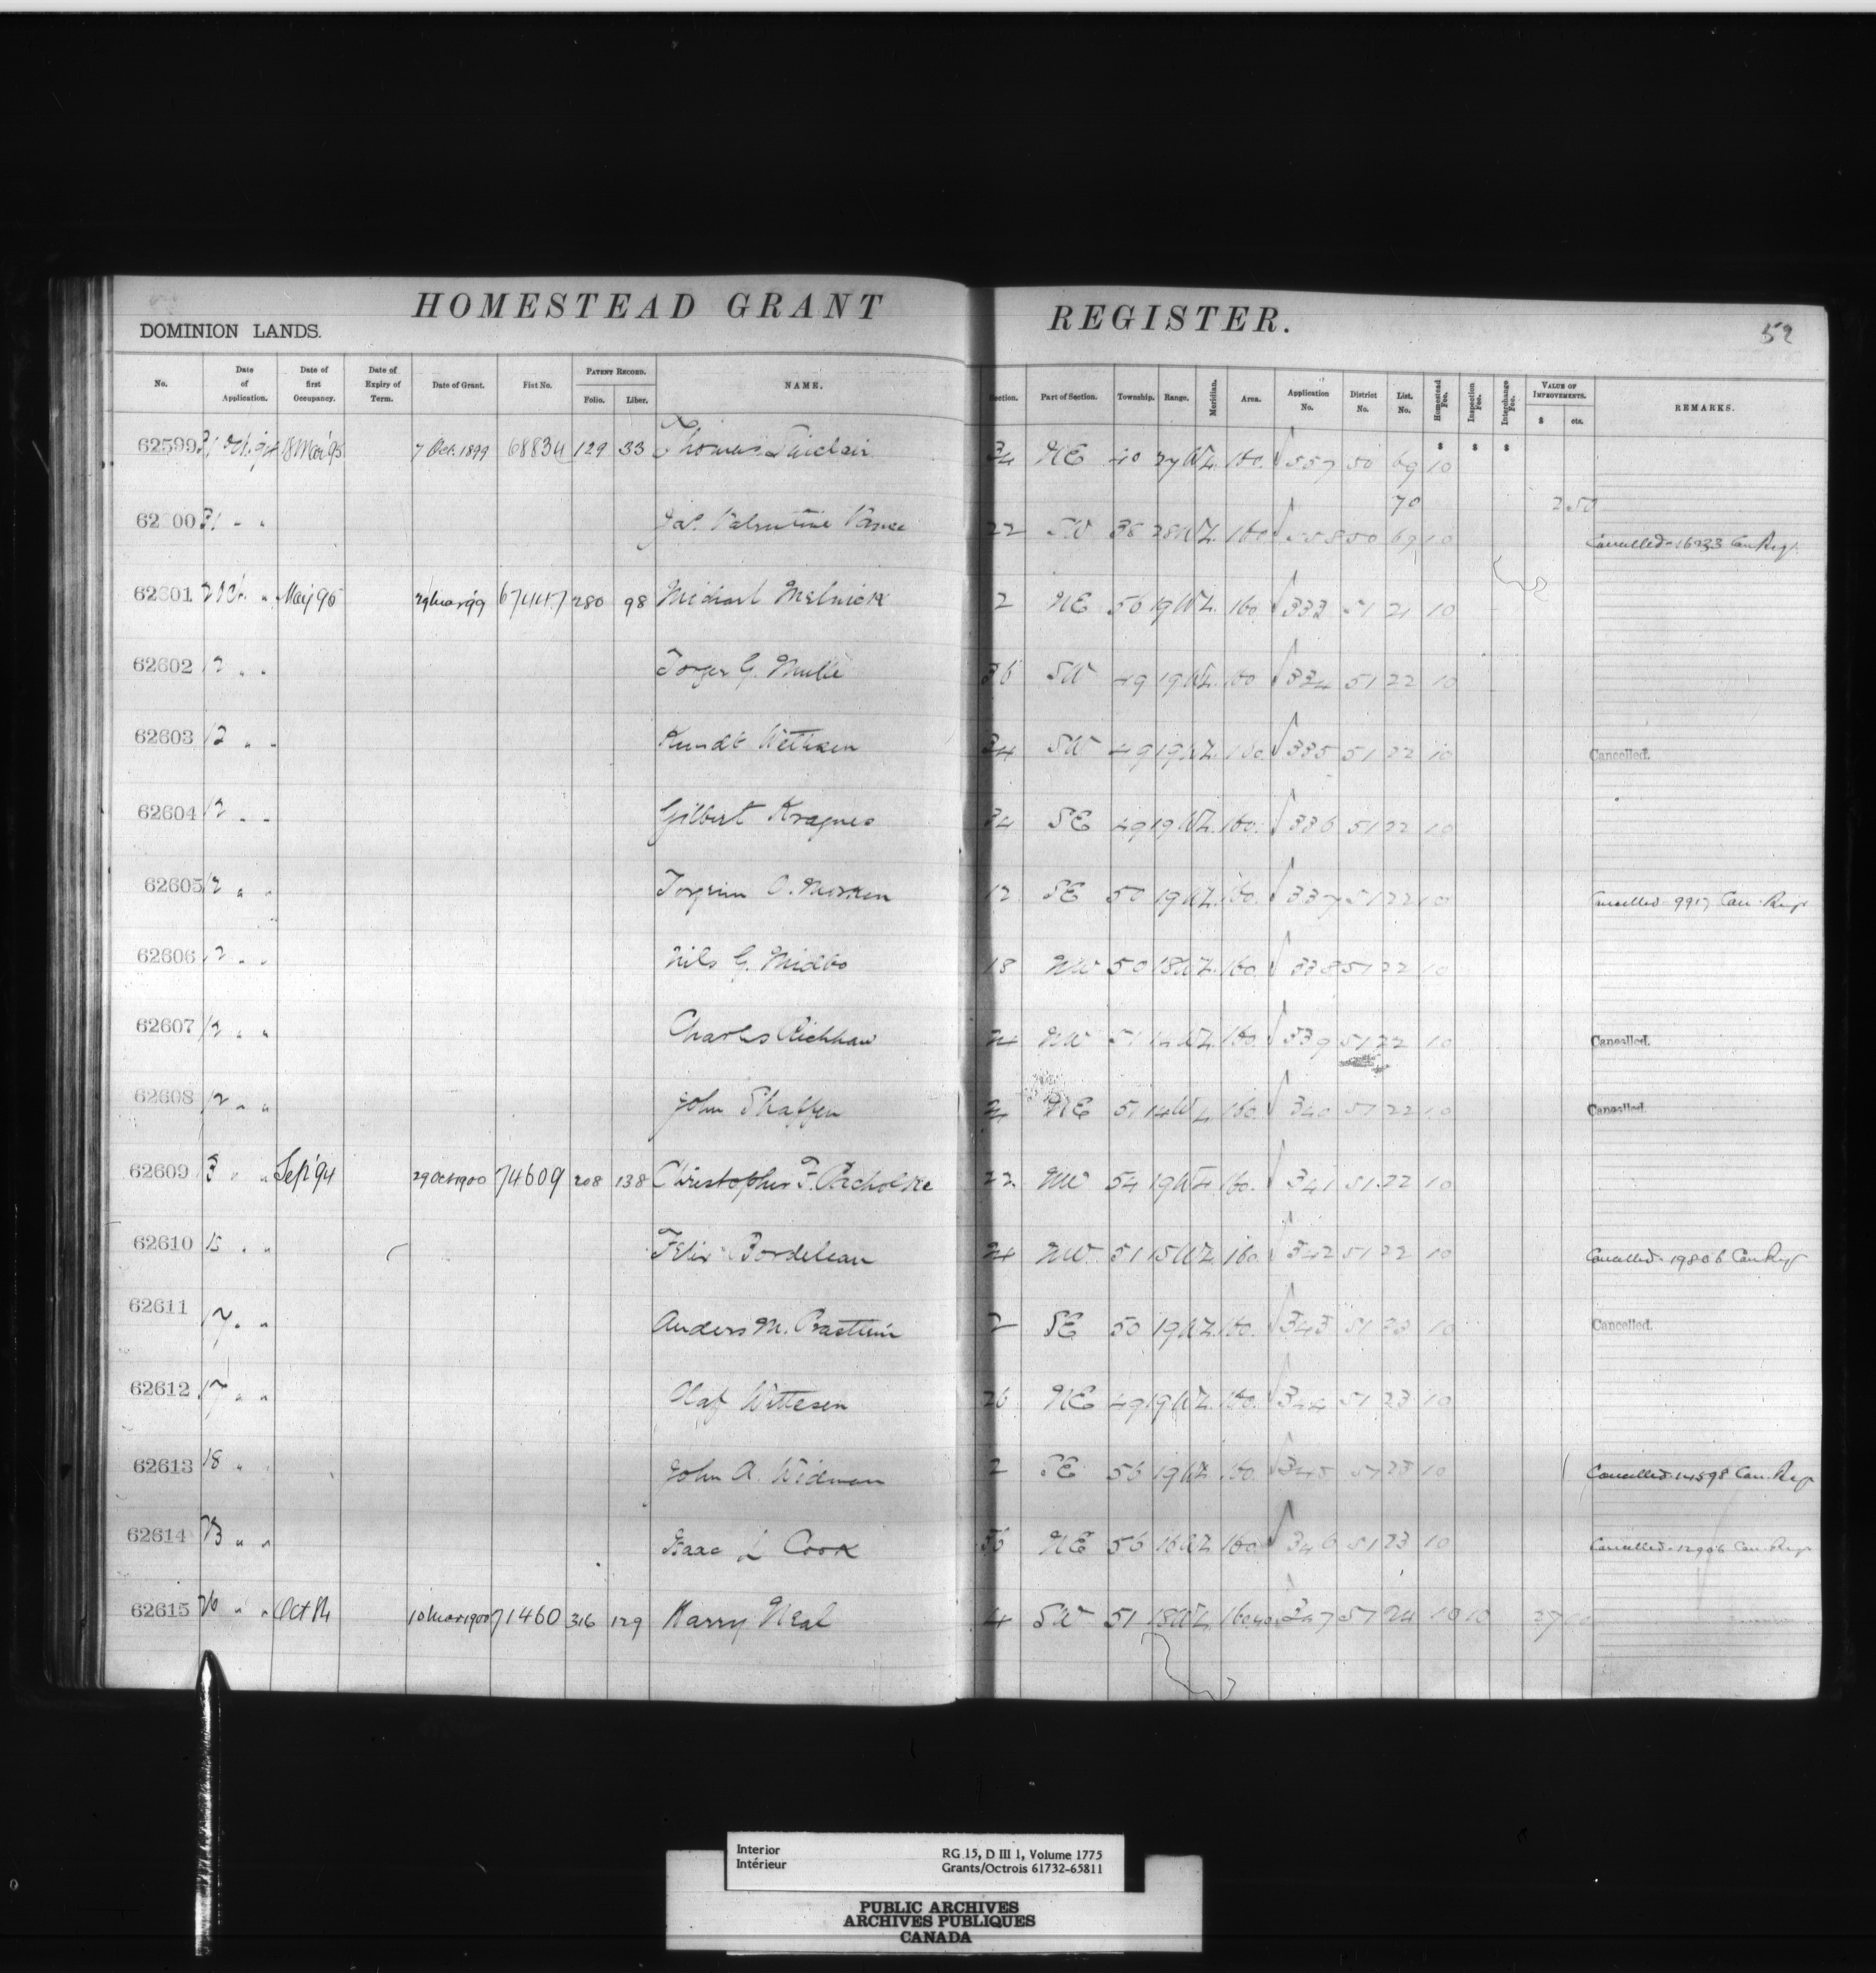 HOMESTEAD GRANT REGISTER.
DOMINION LANDS.
52
No. Date of Application. Date of first Occupancy. Date of Expiry of Term. Date of Grant. Fist No. PATENT RECORD. Folio. Liber. NAME. Section. Part of Section. Township. Range. Meridian. Area. Application No. District No. List. No. Homestead Fee. Inspection Fee. Interchange Fee. VALUE OF IMPROVEMENTS. $ cts. REMARKS.
$ $ $
62599 31 7 Oct. 1899 68834 129 33 Thomas Sinclair 34 NE 40 27 W4. 160. 557 50 69 10
70 2 50
62600 31 " " Jas. Valentine 22 SW 38 28 W4. 160 558 50 69 10 Cancelled 16233 Can Regr.
62601 2 Oct. " May 95 29 Mar 99 67447 280 98 Michael Melnick 2 NE 56 19 W4. 160. 333 51 21 10
62602 12 " " Torger G. 36 SW 49 19 W4. 160 334 51 22 10
62603 12 " " 34 SW 49 19 W4. 160. 335 51 22 10 Cancelled.
62604 12 " " Gilbert Kragnes 34 SE 49 19 W4. 160. 336 51 22 10
62605 12 " " Torgrim O. Morken 12 SE 50 19 W4. 160. 337 51 22 10 Cancelled 9917 Can. Regr
62606 12 " " Nils G. Midbo 18 NW 50 18 W4. 160. 338 51 22 10
62607 12 " " Charles NW 51 14 W4. 160. 339 51 22 10 Cancelled.
62608 12 " " John Shaffer NE 51 14 W4 160. 340 51 22 10 Cancelled.
62609 13 " " Sep '94 29 Oct 1900 74609 208 138 Christopher F. Pacholke 22 NW 54 19 W4 160. 341 51 22 10
62610 15 " " Felix Bordeleau 24 NW. 51 15 W4 160 342 51 22 10 Cancelled. 19806 Can Regr
62611 17 " " Anders M. 2 SE 50 19 W4. 160. 343 51 23 10 Cancelled.
62612 17 " " Olaf Wittesen 26 NE 49 19 W4. 160. 344 51 23 10
62613 18 " " John A. Widman 2 SE 56 19 W4 160. 345 51 23 10 Cancelled. 14598 Can. Regr
62614 " " Isaac L Cook 36 NE 56 16 W4 160. 346 51 23 10 Cancelled. 12906 Can. Regr
62615 20 " " Oct 10 Mar 1900 71460 316 129 Harry Neal 4 SW 51 18 W4 160.40 347 51 24 10 10
Interior
Intérieur
RG 15, D III 1, Volume 1775
Grants/Octrois 61732-65811
PUBLIC ARCHIVES
ARCHIVES PUBLIQUES
CANADA